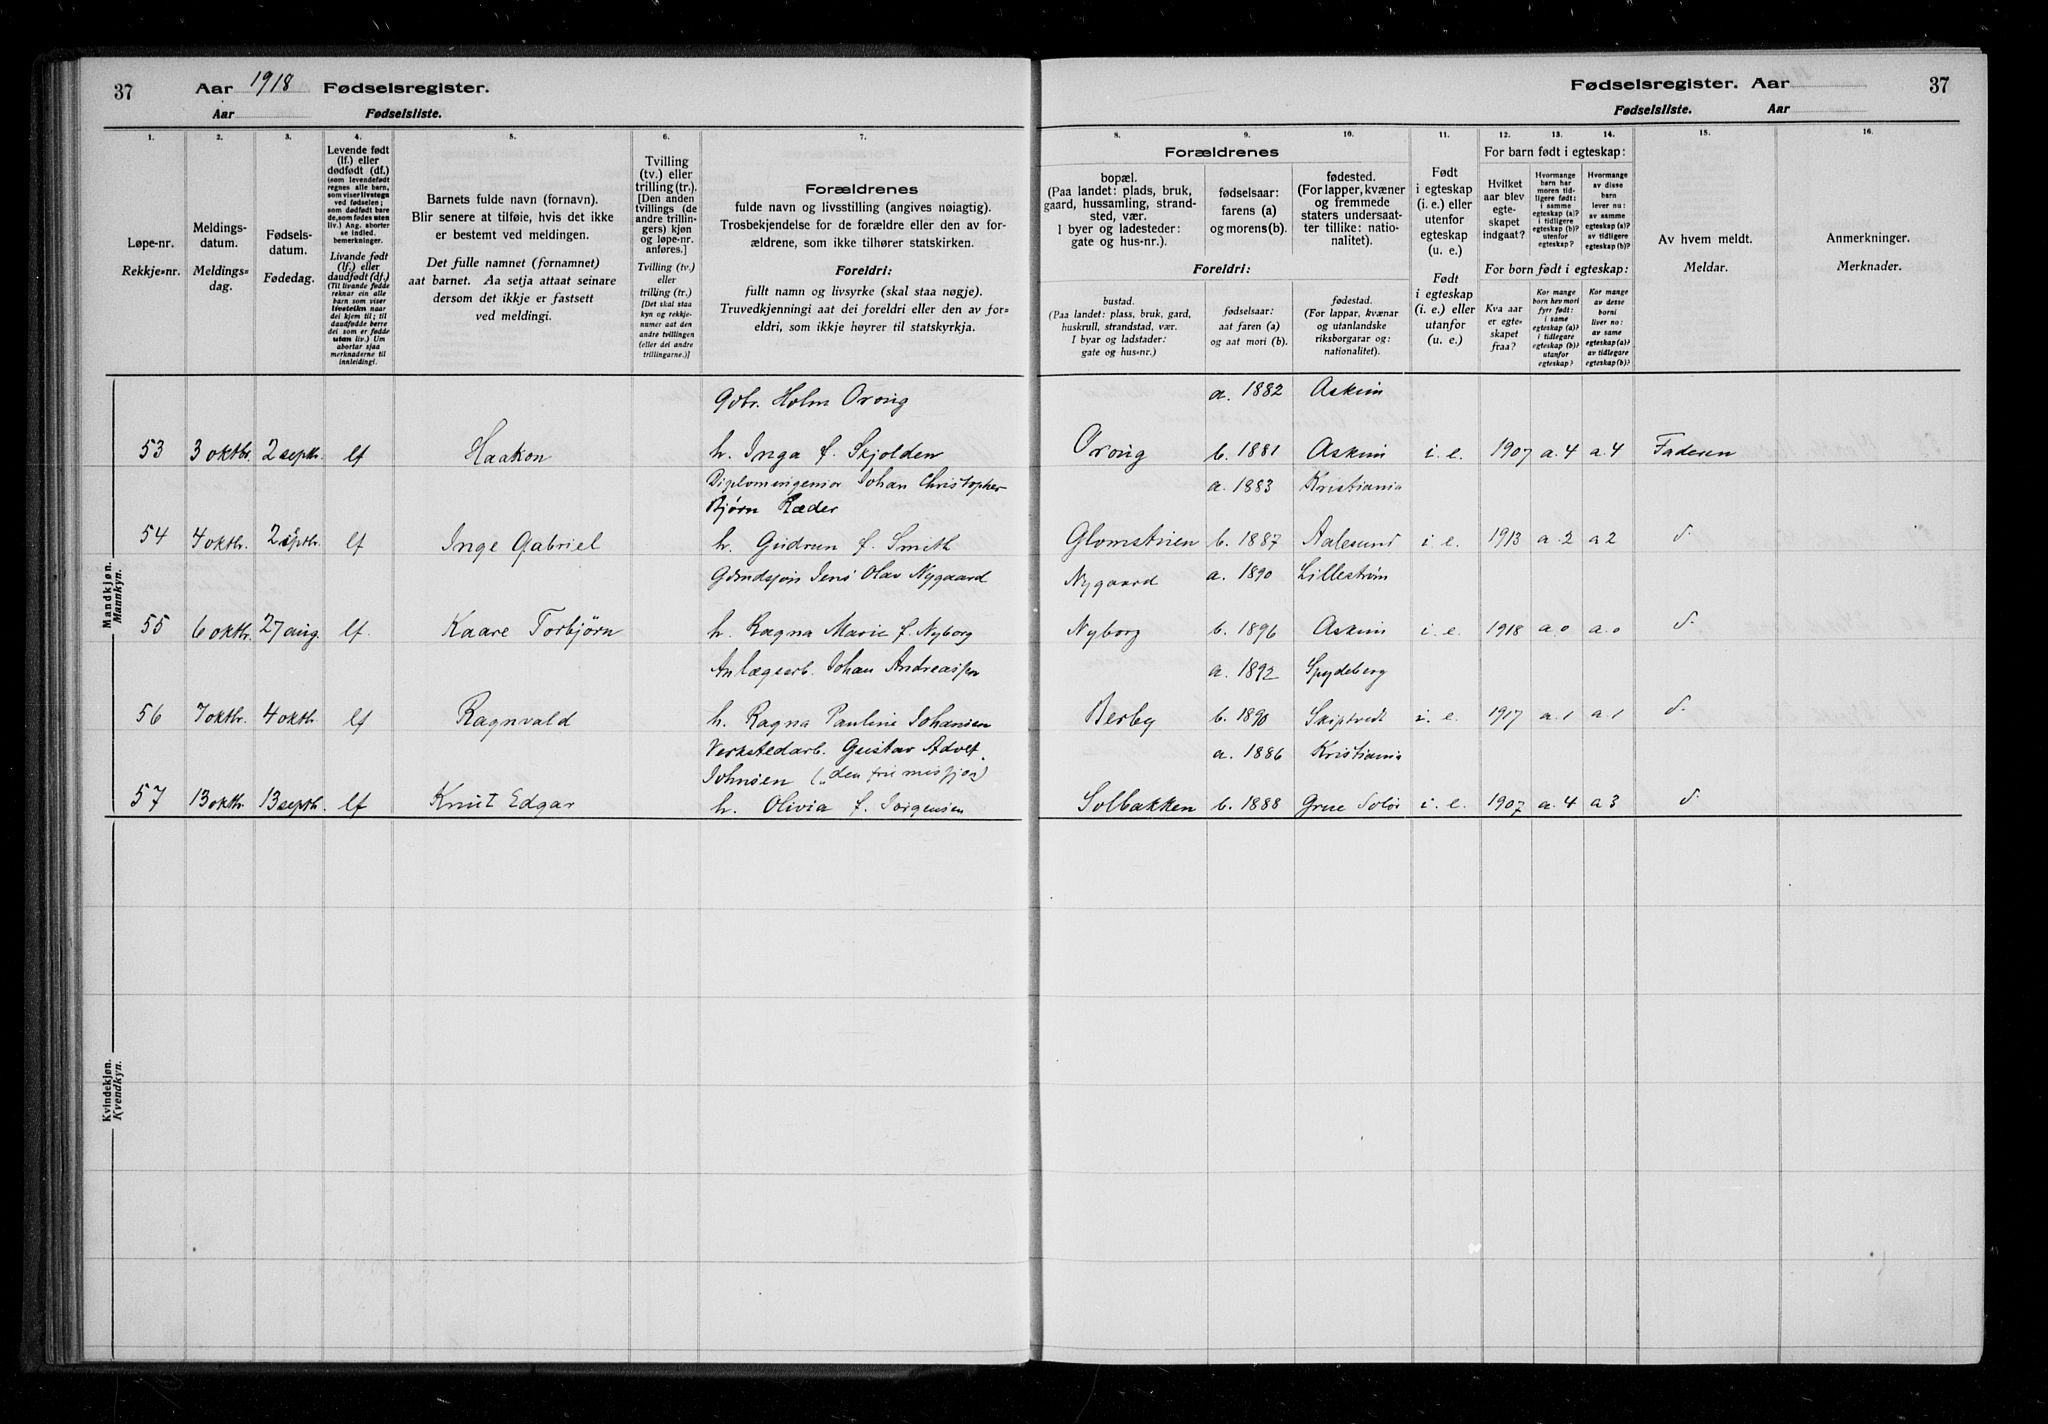 37
Aar 1918 Fødselsregister.
Aar Fødselsliste.
Fødselsregister. Aar
37
Fødselsliste. Aar
1. 2. 3. 4. 5. 6. 7. 8. 9. 10. 11. 12. 13. 14. 15. 16.
Løpe-nr.
Rekkje=nr.
Meldings-
datum.
Meldings=
dag.
Fødsels-
datum.
Fødedag.
Levende født
(lf.) eller
dødfødt (df.)
(som levendefødt
regnes alle barn,
som viser livstegn
ved fødselen;
som dødfødt bare
de, som fødes uten
liv.) Ang. aborter
se indled.
bemerkninger.
Livande født
(lf.) eller
daudfødt (df.)
(Til livande fødde
reknar ein alle
barn som viser
livsteikn naar
dei kjem til; til
daudfødde berre
dei som er fødde
utan liv.) Um
abortar sjaa
merknaderne til
innleiding!.
Barnets fulde navn (fornavn).
Blir senere at tilføie, hvis det ikke
er bestemt ved meldingen.
Det fulle namnet (fornamnet)
aat barnet. Aa setja attaat seinare
dersom det ikkje er fastsett
ved meldingi.
Tvilling
(tv.) eller
trilling (tr.).
[Den anden
tvillings (de
andre trillin-
gers) kjøn
og løpe-nr.
anføres.]
Tvilling (tv.)
eller
trilling (tr.)
[Det skal staa
kyn og rekkje-
numer aat den
andre tvillingen
(eller dei andre
trillingarne.)]
Forældrenes
fulde navn og livsstilling (angives nøiagtig).
Trosbekjendelse for de forældre eller den av for-
ældrene, som ikke tilhører statskirken.
Foreldri:
fullt namn og livsyrke (skal staa nøgje).
Truvedkjenningi aat dei foreldri eller den av for=
eldri, som ikkje høyrer til statskyrkja.
Forældrenes
bopæl.
(Paa landet: plads, bruk,
gaard, hussamling, strand-
sted, vær.
I byer og ladesteder:
gate og hus-nr.).
fødselsaar:
farens (a)
og morens(b).
fødested.
(For lapper, kvæner
og fremmede
staters undersaat-
ter tillike: natio-
nalitet).
Foreldri:
bustad.
(Paa landet: plass, bruk, gard,
huskrull, strandstad, vær.
I byar og ladstader:
gate og hus-nr.)
fødselsaar:
aat faren (a)
og aat mori (b).
fødestad.
(For lappar, kvænar
og utanlandske
riksborgarar og:
nationalitet).
Født
i egteskap
(i. e.) eller
utenfor
egteskap
(u. e.)
Født
i egteskap
(i. e.) eller
utanfor
(u. e.)
For barn født i egteskap:
Hvilket
aar blev
egte-
skapet
indgaat?
Hvormange
barn har
moren tid-
ligere født:
i samme
egteskap (a)?
i tidligere
egteskap (b)?
utenfor
egteskap?
Hvormange
av disse
barn
lever nu:
av samme
egteskap (a)?
av tidligere
egteskap (b)?
For born født i egteskap:
Kva aar
er egte-
skapet
fraa?
Kor mange
born hev mori
fyrr født:
i same
egteskap (a)?
i tidlegare
egteskap (b)?
utanfor
egteskap?
Kor mange
av desse
borni
liver no:
av same
egteskap (a)?
av tidlegare
egteskap (b)?
Av hvem meldt.
Meldar.
Anmerkninger.
Merknader.
Mandkjøn.
Mannkyn.
Gbr. Holm Orong a. 1882 Askim
53 3 oktbr. 2 septbr. lf Haakon h. Inga f. Skjolden Orong b. 1881 Askim i. e. 1907 a. 4 a. 4 Faderen
Diplomingeniør Johan Christopher a. 1883 Kristiania
Bjørn Ræder
54 4 oktbr. 2 septbr. lf Inge Gabriel h. Gudrun f. Smith b. 1887 Aalesund i. e. 1913 a. 2 a 2 d.
Jens Olav Nygaard Nygaard a. 1890 Lillestrøm
55 6 oktbr. 27 aug. lf. Kaare Torbjørn h. Ragna Marie f. Nyborg Nyborg b. 1896 Askim i. e. 1918 a. 0 a. 0 d.
Anlægsarb. Johan Andreassen a. 1892 Spydeberg
56 7 oktbr. 4 oktbr. lf Ragnvald h. Ragna Pauline Johansen Berby b. 1890 Skiptvedt i. e. 1917 a. 1 a. 1 d.
Verkstedarb. Gustav Adolf a. 1886 Kristiania
Johnsen („den fri misjon)
57 13 oktbr. 13 septb. lf Knut Edgar h. Olivia f. Jørgensen Solbakken b. 1888 Grue Solør i. e. 1907 a. 4 a 3 d.
Kvindekjøn.
Kvendkyn.